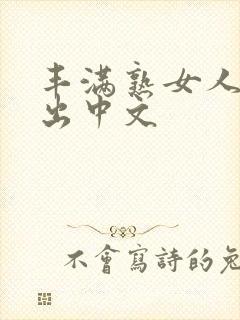 丰满熟女人
出中文
不會寫詩的兔